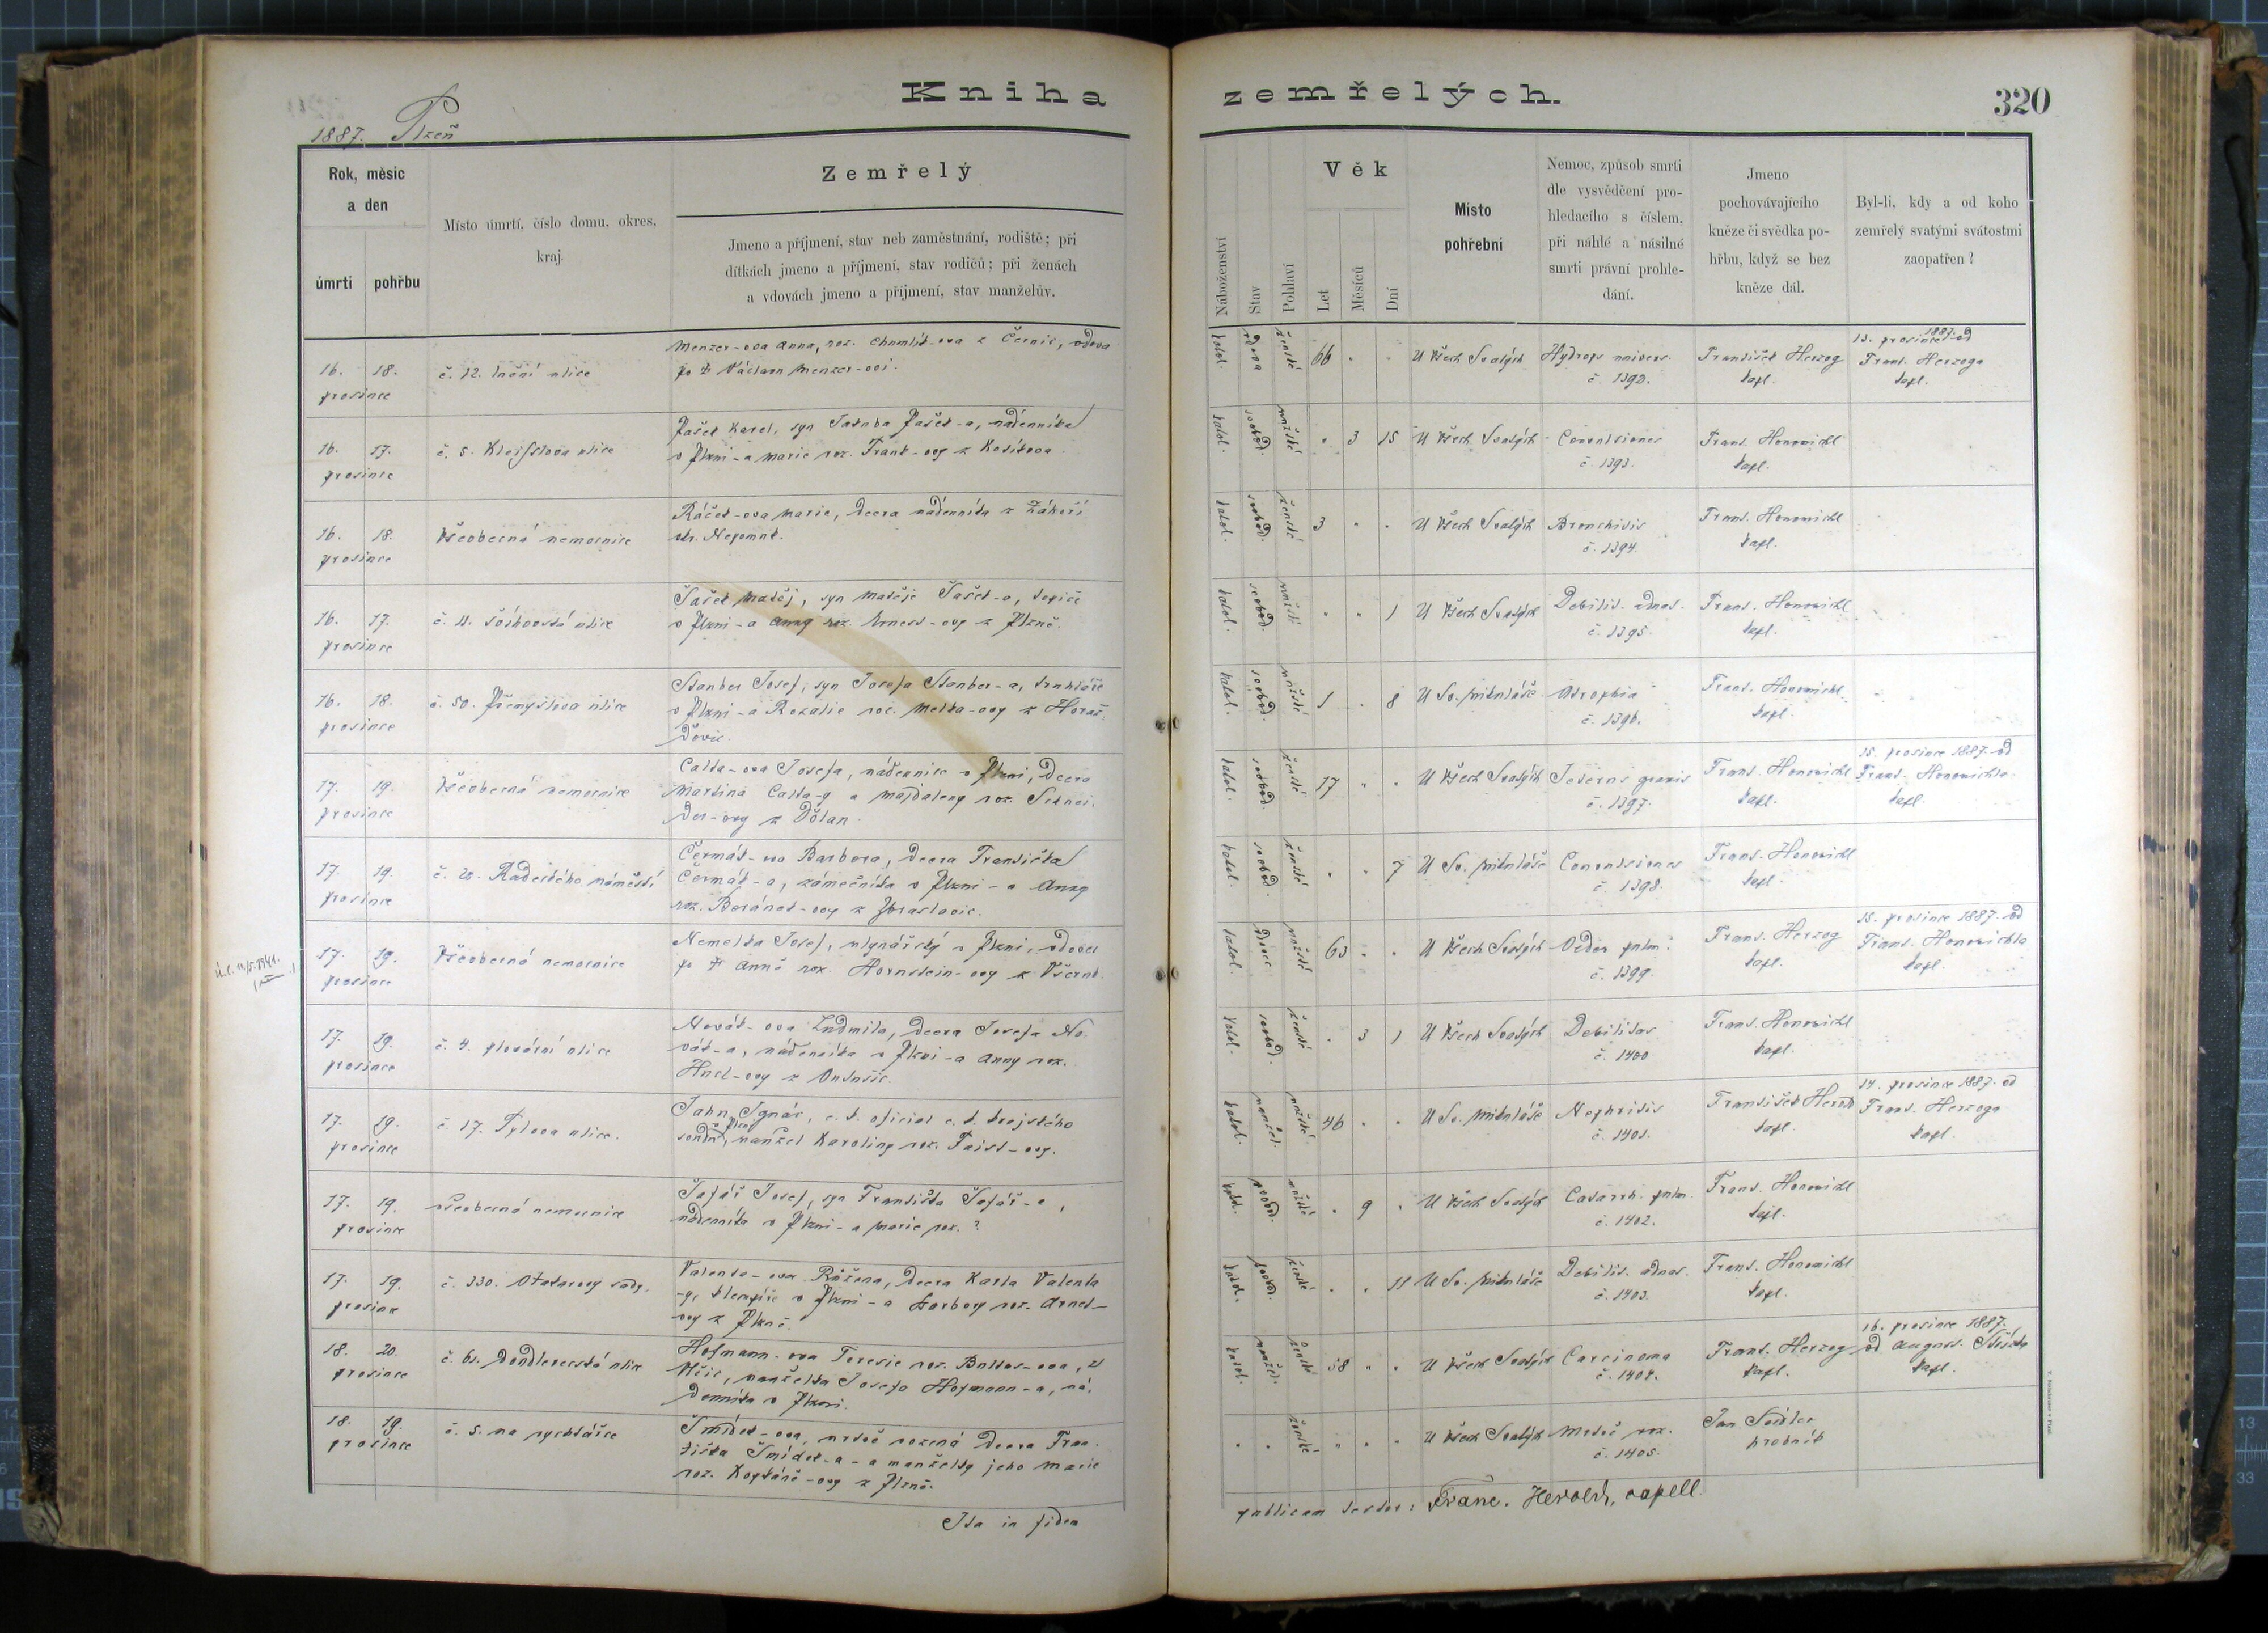 Kniha zemřelých.
320
1887. Plzeň
Rok, měsíc
a den
úmrtí
pohřbu
Místo úmrtí, číslo domu, okres,
kraj.
Zemřelý
Jmeno a příjmení, stav neb zaměstnání, rodiště; při
dítkách jmeno a příjmení, stav rodičů; při ženách
a vdovách jmeno a příjmení, stav manželův.
Náboženství
Stav
Pohlaví
Věk
Let
Měsíců
Dní
Místo
pohřební
Nemoc, způsob smrti
dle vysvědčení pro-
hledacího s číslem,
při náhlé a násilné
smrti právní prohle-
dání.
Jmeno
pochovávajícího
kněze či svědka po-
hřbu, když se bez
kněze dál.
Byl-li, kdy a od koho
zemřelý svatými svátostmi
zaopatřen?
16. 18.
prosince
č. 12. lnění ulice
Menzer-ova Anna, roz. z Černic, vdova
po † Václavu Menzer-ovi.
katol. vdova ženské 66 U Všech Svatých
Hydrops univers.
č. 1392.
František Herzog
kapl.
13. prosince 1887. od
Frant. Herzoga
kapl.
16. 17.
prosince
č. 5. ulice
Pašek Karel, syn Jakuba Pašek-a, nádenníka
v Plzni - a Marie roz. Frank-ovy z
katol. svobod. mužské 3 15 U Všech Svatých
Convulsiones
č. 1393.
Frant. Honomichl
kapl.
16. 18.
prosince
Všeobecná nemocnice
Ráček-ova Marie, dcera nádenníka z Záhoří
okr. Nepomuk.
katol. svobod. ženské 3 U Všech Svatých
Bronchitis
č. 1394.
Frant. Honomichl
kapl.
16. 17.
prosince
č. 11. ulice
Šašek Matěj, syn Matěje Šašek-a, topiče
v Plzni - a Anny roz. z Plzně.
katol. svobod. mužské 1 U Všech Svatých
Debilit. adnat.
č. 1395.
Frant. Honomichl
kapl.
16. 18.
prosince
č. 50. Přemyslova ulice
Stanber Josef, syn Josefa Stanber-a, truhláře
v Plzni - a Rozalie roz. Melka-ovy z Horaž-
ďovic.
katol. svobod. mužské 1 8 U Sv. Mikuláše
Atrophia
č. 1396.
Frant. Honomichl
kapl.
17. 19.
prosince
Všeobecná nemocnice
Calta-ova Josefa, nádennice v Plzni, dcera
Martina Calta-y a Majdaleny roz. Schnei-
der-ovy z Dolan.
katol. svobod. ženské 17 U Všech Svatých
Icterus gravis
č. 1397.
Frant. Honomichl
kapl.
15. prosince 1887. od
Frant. Honomichla
kapl.
17. 19.
prosince
č. 20. Radeckého náměstí
Čermák-ova Barbora, dcera Františka
Čermák-a, zámečníka v Plzni - a Anny
roz. Beránek-ovy z Zbraslavic.
katol. svobod. ženské 7 U Sv. Mikuláše
Convulsiones
č. 1398.
Frant. Honomichl
kapl.
17. 19.
prosince
Všeobecná nemocnice
Nemelka Josef, mlynářský v Plzni, vdovec
po † Anně roz. Hornstein-ovy z Všerub.
katol. vdovec mužské 63 U Všech Svatých
Oedem pulm.
č. 1399.
Frant. Herzog
kapl.
15. prosince 1887. od
Frant. Honomichla
kapl.
17. 19.
prosince
č. 4. plovární ulice
Novák-ova Ludmila, dcera Josefa No-
vák-a, nádenníka v Plzni - a Anny roz.
Hucl-ovy z
katol. svobod. ženské 3 1 U Všech Svatých
Debilitas
č. 1400
Frant. Honomichl
kapl.
17. 19.
prosince
č. 17. Tylova ulice.
Jahn Ignác, c. k. oficiál c. k. krajského
soudu v Plzni, manžel Karoliny roz. Faist-ovy.
katol. manžel. mužské 46 U Sv. Mikuláše
Nephritis
č. 1401.
František Herold
kapl.
14. prosince 1887. od
Frant. Herzoga
kapl.
17. 19.
prosince
všeobecná nemocnice
Šafář Josef, syn Františka Šafář-a,
nádenníka v Plzni - a Marie roz. ?
katol. svobod. mužské 9 U Všech Svatých
Catarrh. pulm.
č. 1402.
Frant. Honomichl
kapl.
17. 19.
prosince
č. 330. Otakarovy sady.
Valenta-ova Růžena, dcera Karla Valenta
-y, klempíře v Plzni - a Barbory roz. Arnet-
ovy z Plzně.
katol. svobod. ženské 11 U Sv. Mikuláše
Debilit. adnat.
č. 1403.
Frant. Honomichl
kapl.
18. 20.
prosince
č. 61. Doudlevecká ulice
Hofmann-ova Teresie roz. z
manželka Josefa Hofmann-a, ná-
denníka v Plzni.
katol. manžel. ženské 58 U Všech Svatých
Carcinoma
č. 1404.
Frant. Herzog
kapl.
16. prosince 1887.
od August.
kapl.
18. 19.
prosince
č. 5. na rychtářce
Šmídek-ova, mrtvě rozená dcera Fran-
tiška Šmídek-a - a manželky jeho Marie
roz. z Plzně.
ženské U Všech Svatých
Mrtvě roz.
č. 1405.
Jan Seidler
hrobník
Ita in fidem
publicam testor: Franc. Herold, capell.